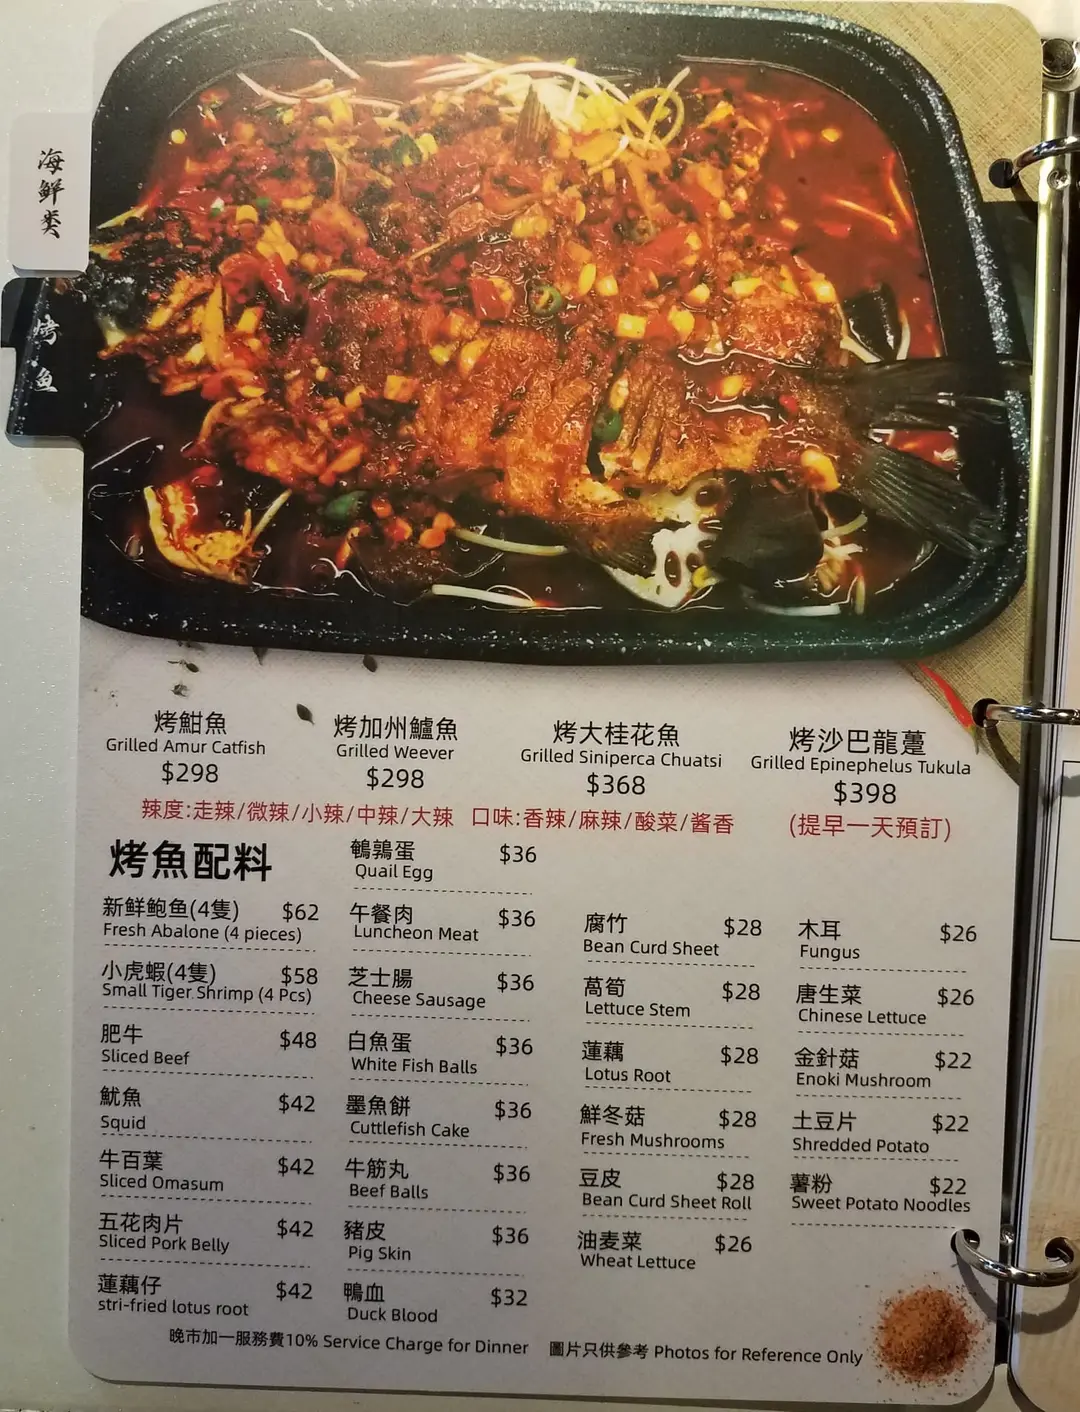 海鲜类
烤鱼
烤鮒魚
Grilled Amur Catfish
$298
烤加州鱸魚
Grilled Weever
$298
烤大桂花魚
Grilled Siniperca Chuatsi
$368
烤沙巴龍躉
Grilled Epinephelus Tukula
$398
辣度:走辣/微辣/小辣/中辣/大辣 口味:香辣/麻辣/酸菜/酱香
(提早一天預訂)
烤魚配料
新鮮鲍鱼(4隻) $62
Fresh Abalone (4 pieces)
小虎蝦(4隻) $58
Small Tiger Shrimp (4 Pcs)
肥牛 $48
Sliced Beef
魷魚 $42
Squid
牛百葉 $42
Sliced Omasum
五花肉片 $42
Sliced Pork Belly
蓮藕仔 $42
stri-fried lotus root
鵪鶉蛋 $36
Quail Egg
午餐肉 $36
Luncheon Meat
芝士腸 $36
Cheese Sausage
白魚蛋 $36
White Fish Balls
墨魚餅 $36
Cuttlefish Cake
牛筋丸 $36
Beef Balls
豬皮 $36
Pig Skin
鴨血 $32
Duck Blood
腐竹 $28
Bean Curd Sheet
萵筍 $28
Lettuce Stem
蓮藕 $28
Lotus Root
鮮冬菇 $28
Fresh Mushrooms
豆皮 $28
Bean Curd Sheet Roll
油麦菜 $26
Wheat Lettuce
木耳 $26
Fungus
唐生菜 $26
Chinese Lettuce
金針菇 $22
Enoki Mushroom
土豆片 $22
Shredded Potato
薯粉 $22
Sweet Potato Noodles
晚市加一服務費10% Service Charge for Dinner
圖片只供參考 Photos for Reference Only